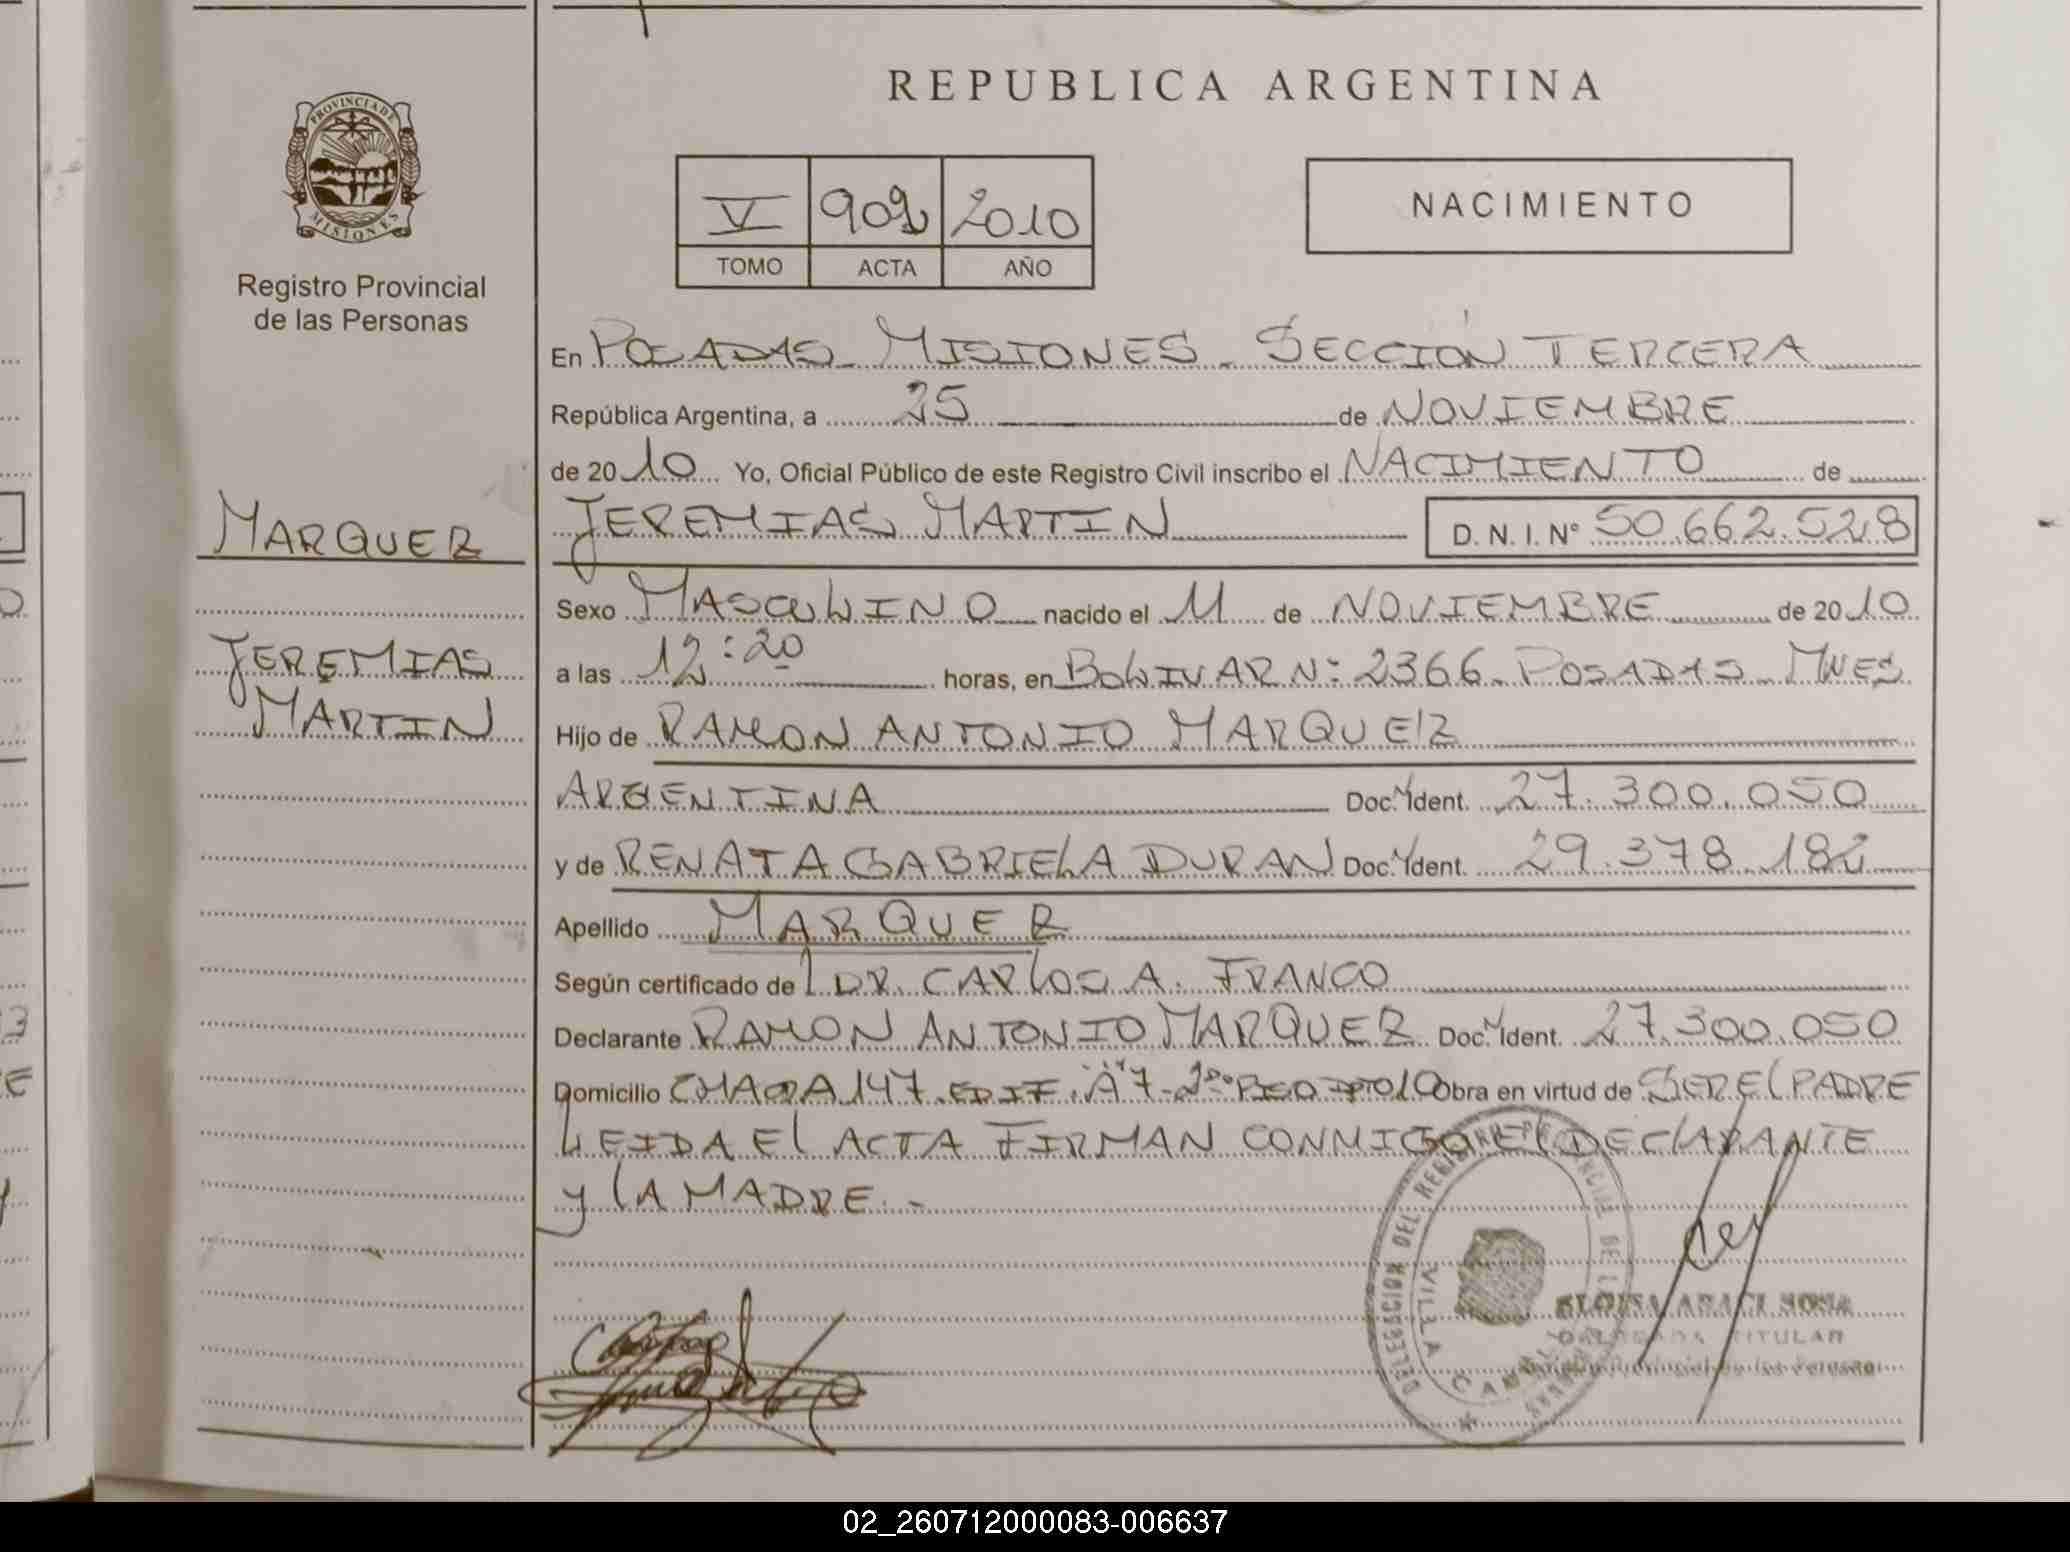 REPUBLICA ARGENTINA
PROVINCIA DE
MISIONES
Registro Provincial
de las Personas
V 902 2010
TOMO ACTA AÑO
NACIMIENTO
En POSADAS - MISIONES - SECCION TERCERA
República Argentina, a 25 de NOVIEMBRE
de 2010 Yo, Oficial Público de este Registro Civil inscribo el NACIMIENTO de
MARQUEZ
JEREMIAS MARTIN D. N. I. Nº 50.662.528
Sexo MASCULINO nacido el 11 de NOVIEMBRE de 2010
JEREMIAS
MARTIN
a las 12:20 horas, en BOLIVAR Nº 2366 - POSADAS - MNES
Hijo de RAMON ANTONIO MARQUEZ
ARGENTINA Doc. Ident. 27.300.050
y de RENATA GABRIELA DURAN Doc. Ident. 29.378.182
Apellido MARQUEZ
Según certificado de DR. CARLOS A. FRANCO
Declarante RAMON ANTONIO MARQUEZ Doc. Ident. 27.300.050
Domicilio CHACRA 147 EDIF. "A" 7 - 2do PISO DPTO 10 Obra en virtud de SER EL PADRE
LEIDA El ACTA FIRMAN CONMIGO El DEClARANTE
y lA MADRE. -
DELEGACION DEL REGISTRO PROVINCIAL DE LAS PERSONAS
VILLA CABELLO
TITULAR
02_260712000083-006637